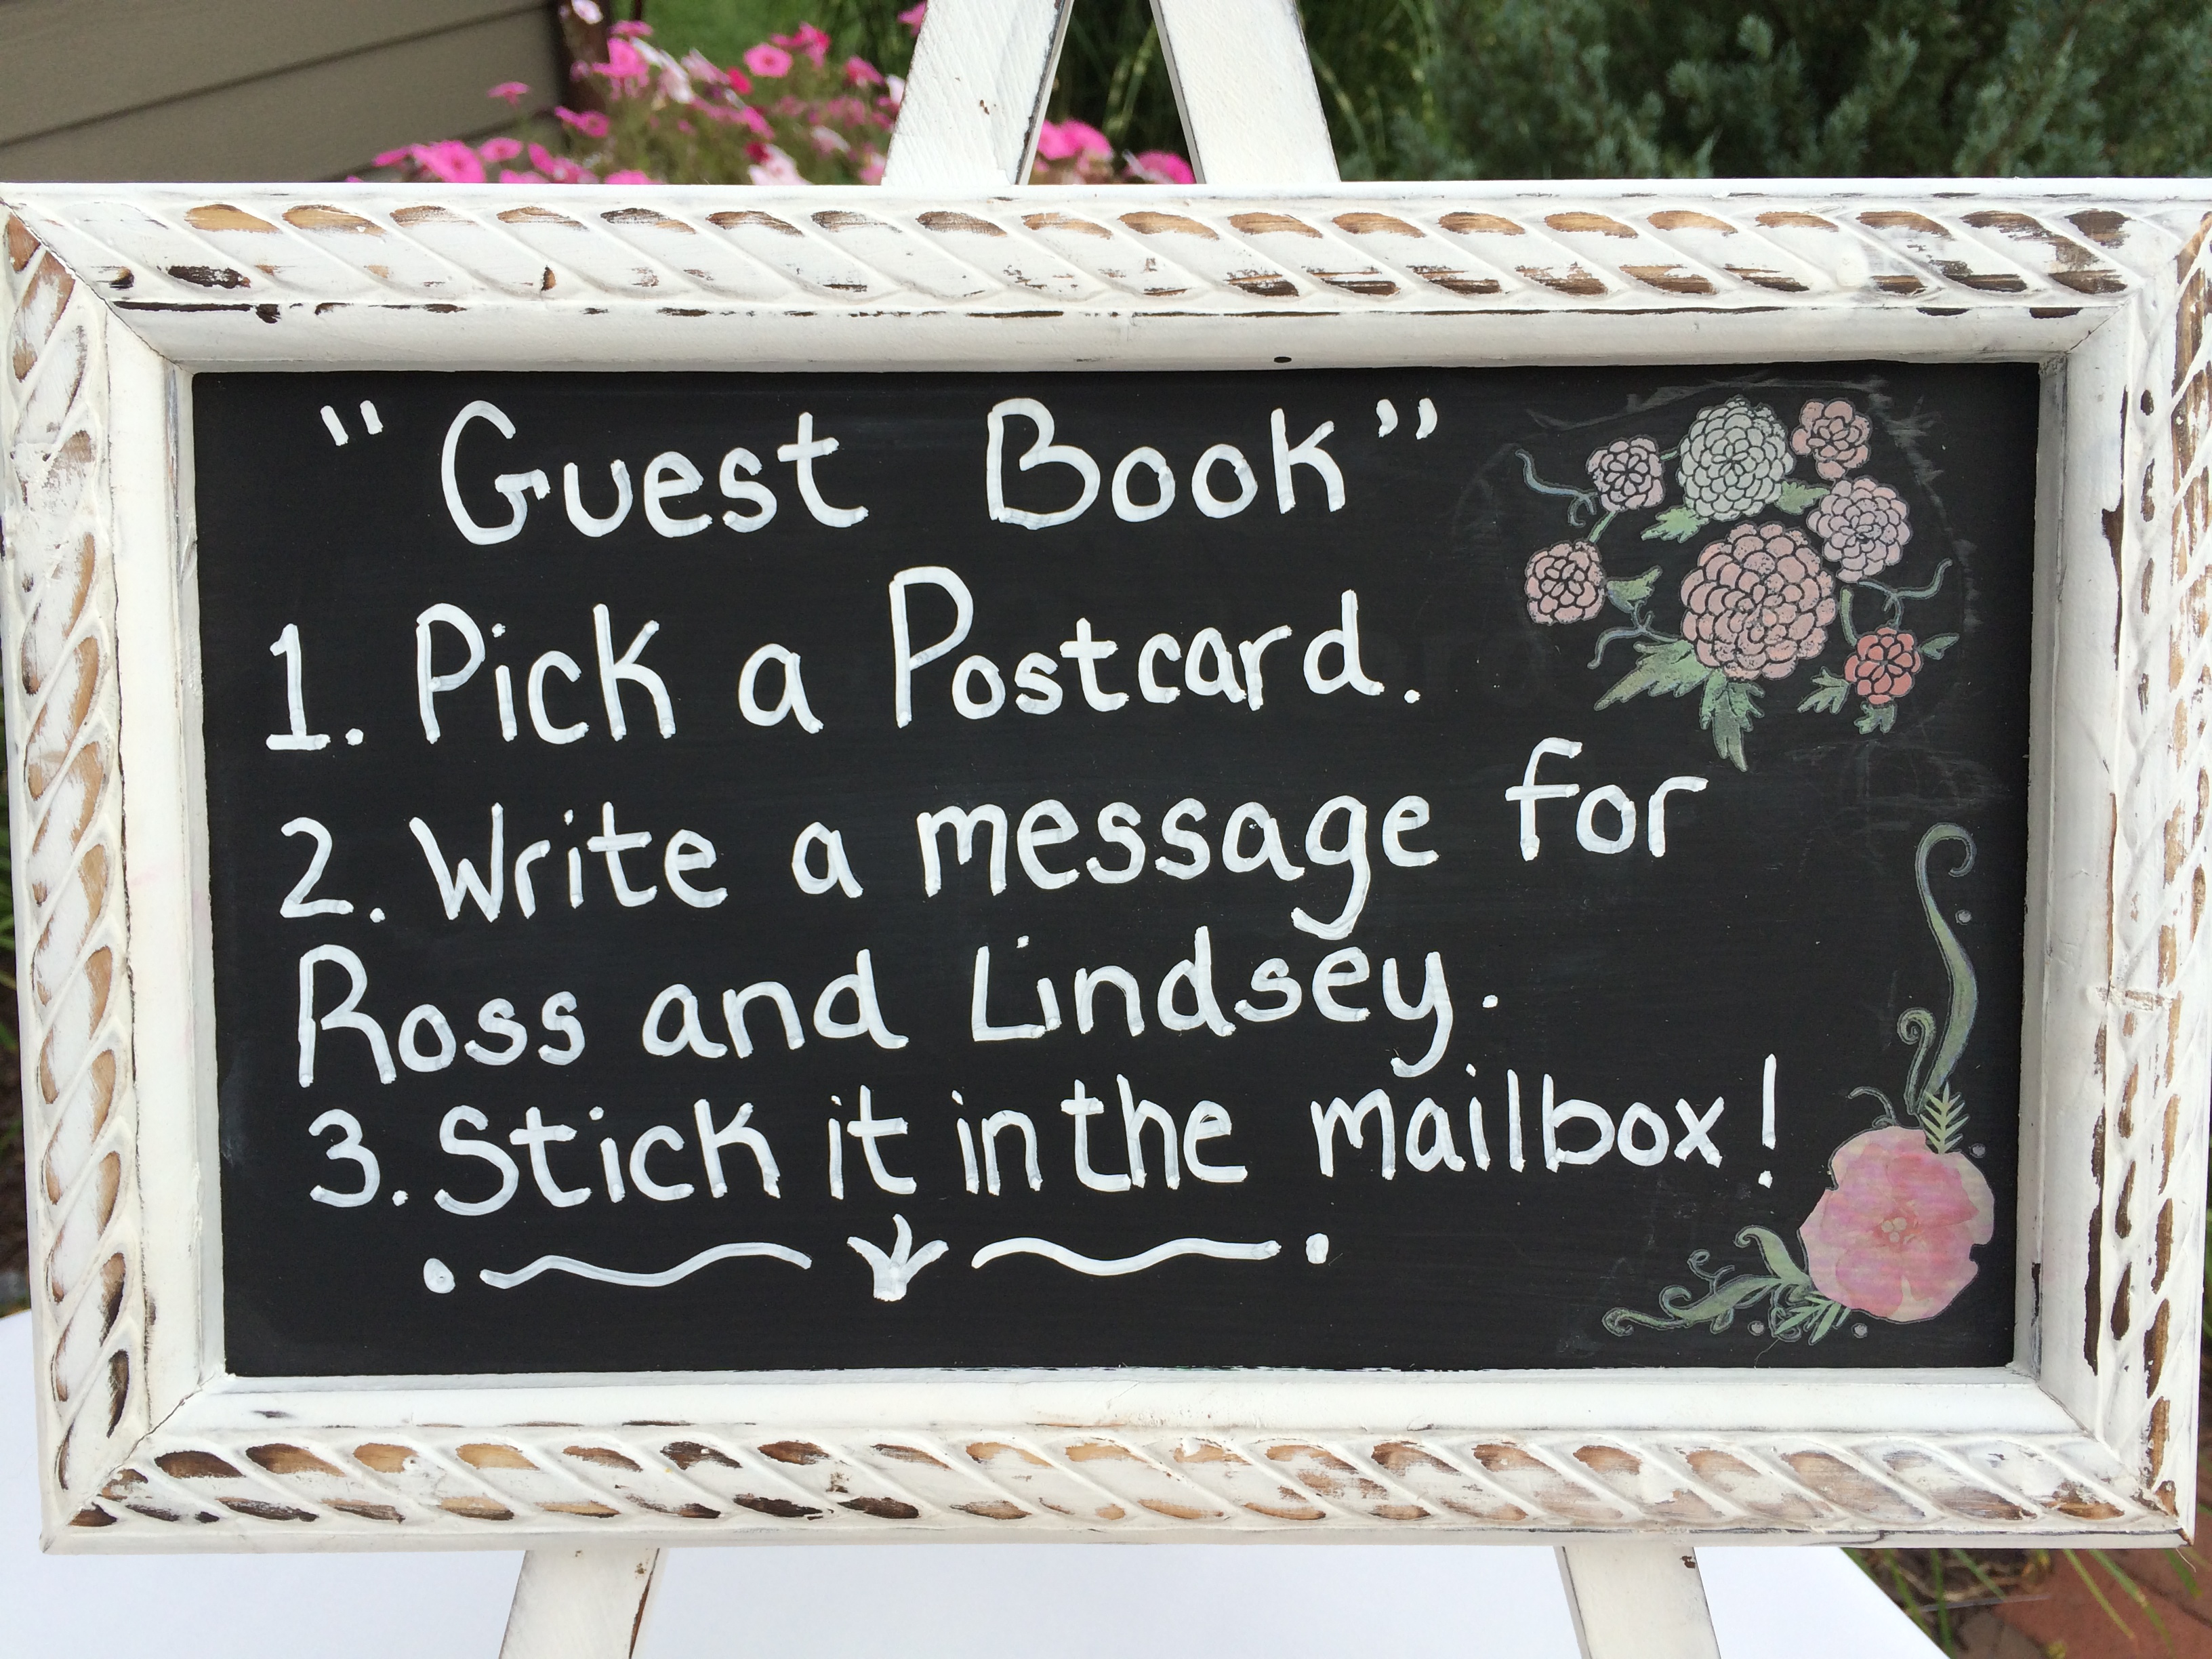 "Guest Book"
1. Pick a Postcard.
2. Write a message for
Ross and Lindsey.
3. Stick it in the mailbox!